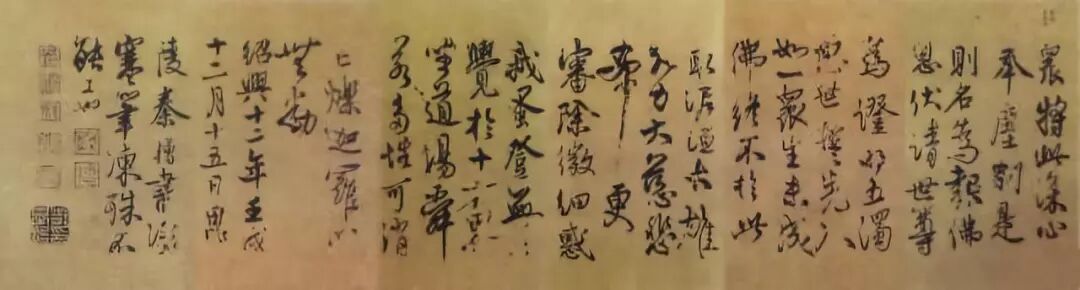 衆將此深心
奉塵剎是
則名為報佛
恩伏請世尊
為證明五濁
惡世誓先入
如一眾生未成
佛終不於此
取泥洹大雄
大力大慈悲
希更
審除微細惑
我蚤登無
覺於十
坐道場舜
若多性可消
亡爍迦羅心
無動
紹興十二年壬戌
十二月十五日
陵秦檜書
寒筆凍殊不
能工也